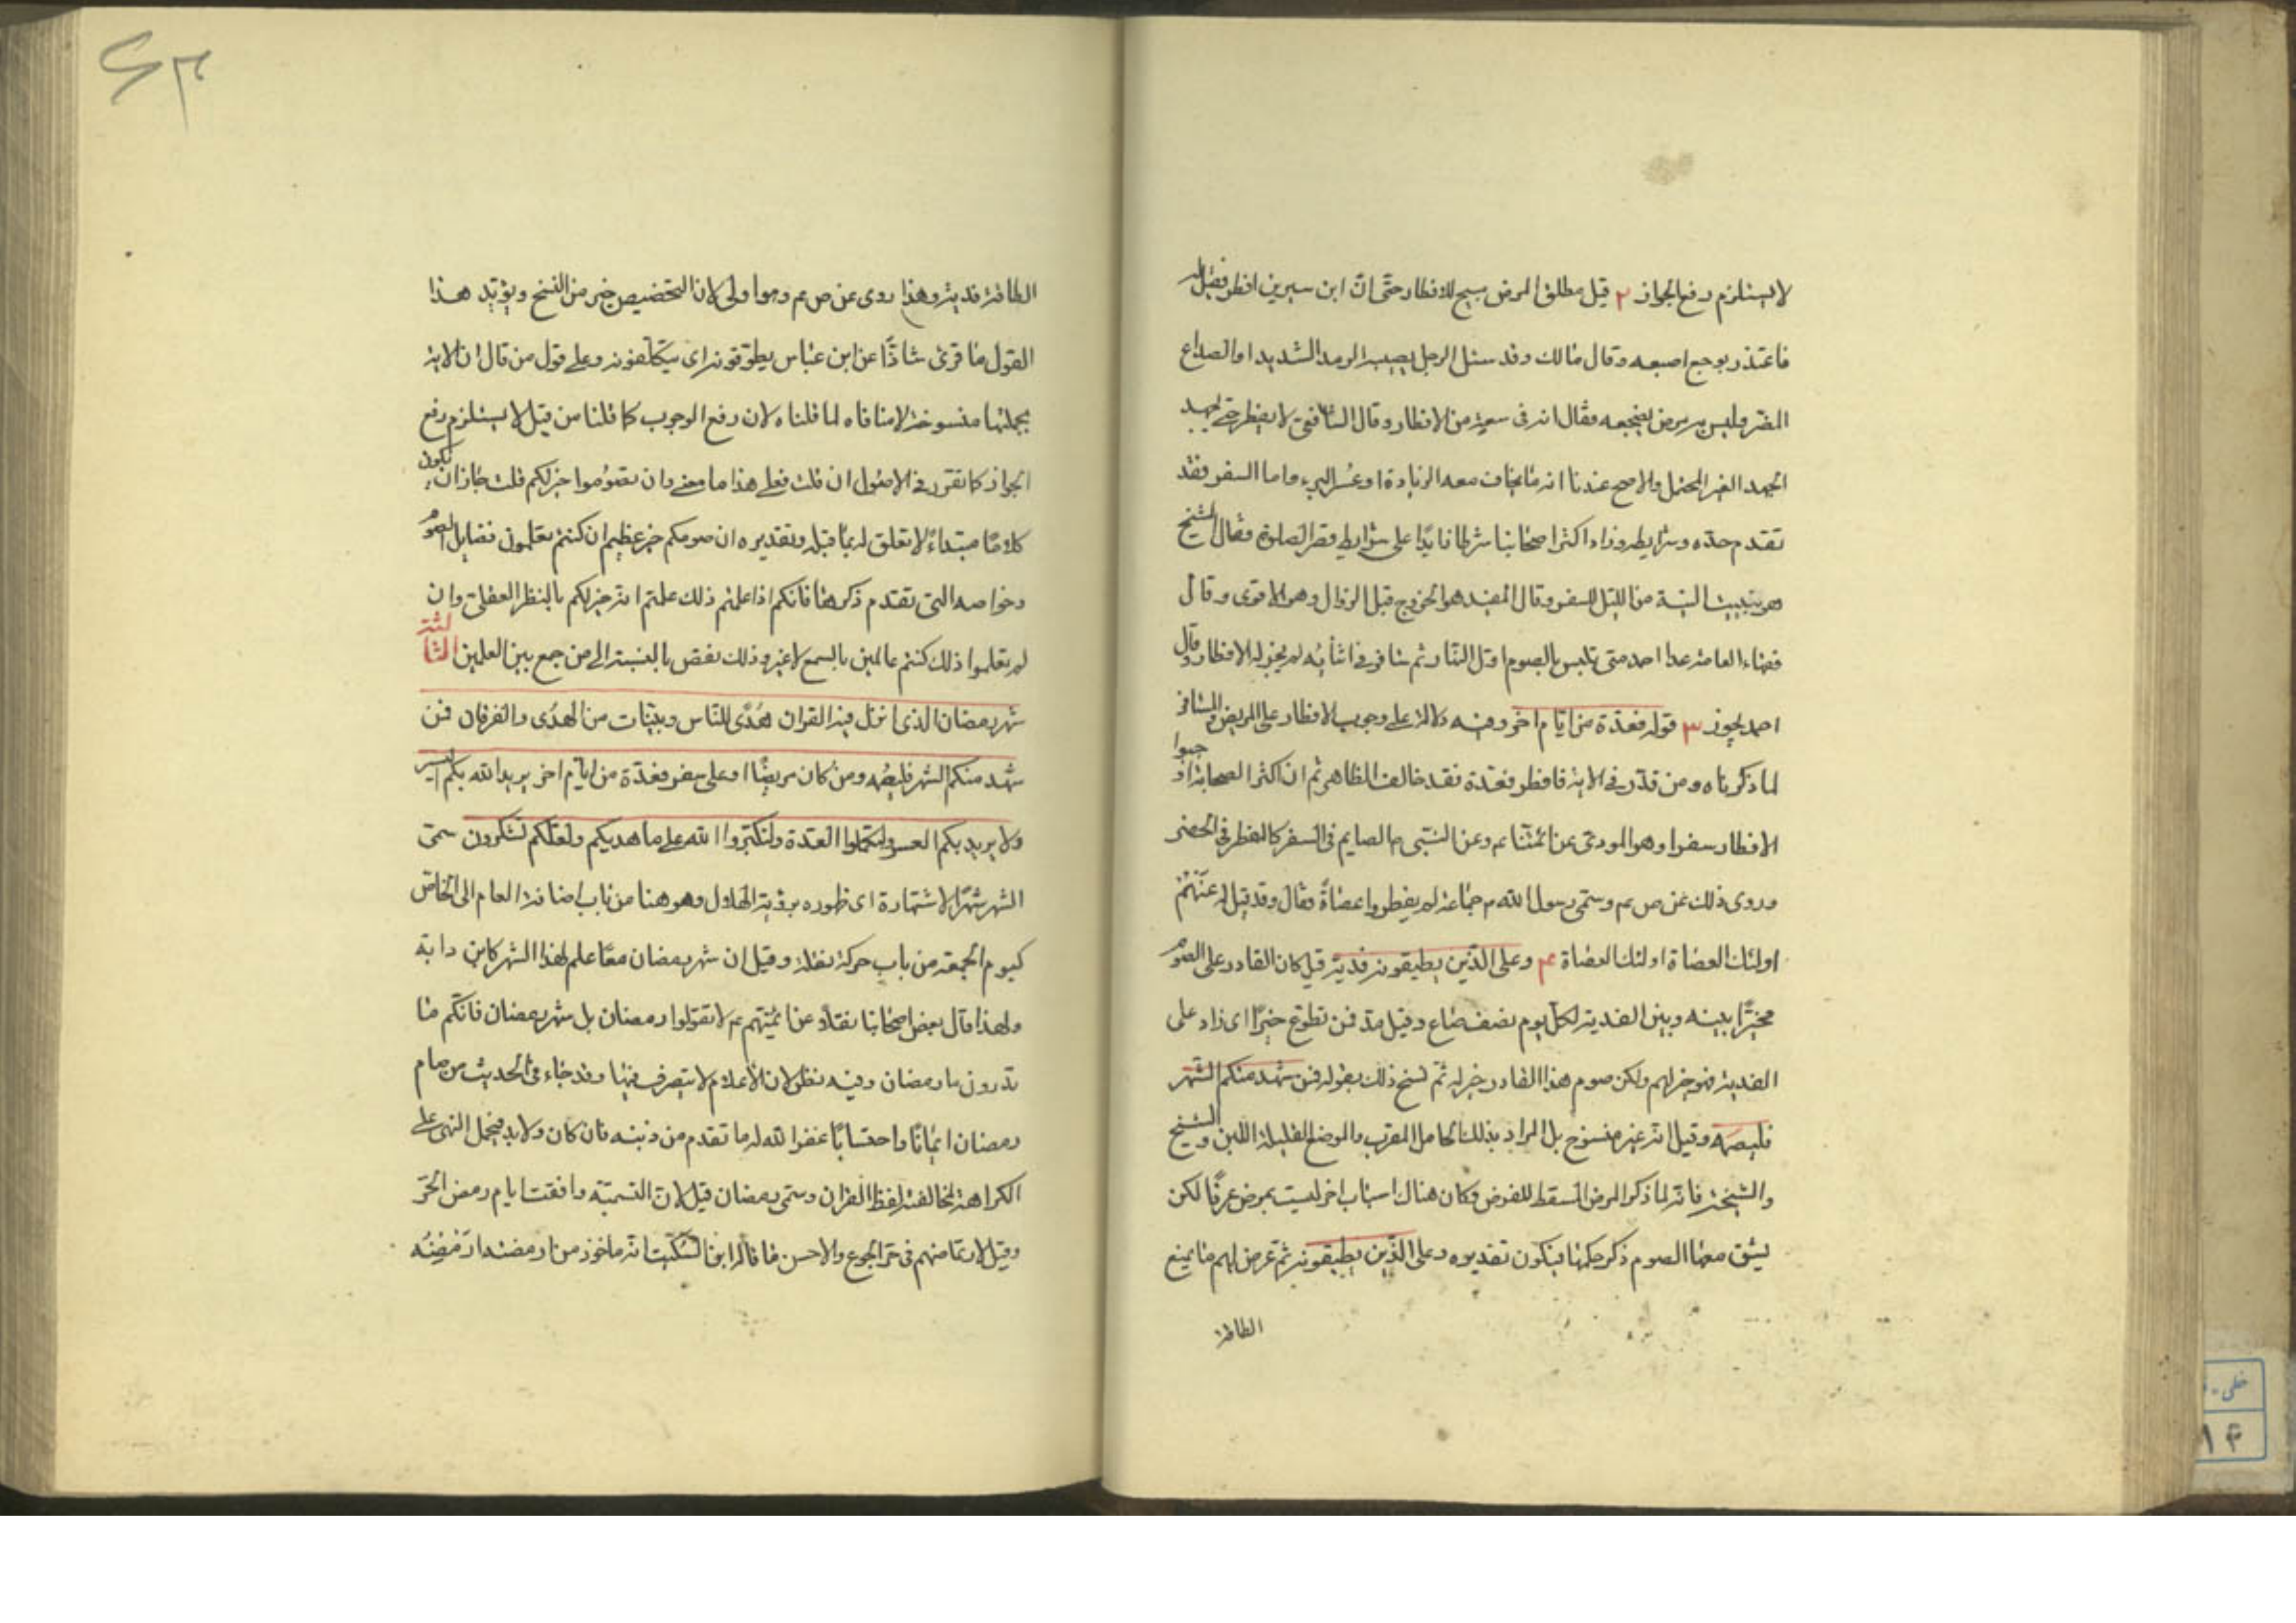 لا يستلزم رفع الجواز ٢ قيل مطلق المرض مبيح للافطار حتى انّ ابن سيرين افطر فقيل له
فاعتذر بوجع اصبعه وقال مالك وقد سئل الرجل يصيبه الرمد الشديد او الصداع
المضر وليس به مرض يضجعه فقال انه فى سعة من الافطار وقال الشافعى لا يفطر حتى يجهد
الجهد الغير المحتمل والاصح عندنا انه ما يخاف معه الزيادة او عُسر البرء واما السفر فقد
تقدم حدّه وشرايطه وزاد اكثر اصحابنا شرطا زايدًا على شرايط قصر الصلوة فقال الشيخ
هو تبييت النية من الليل للسفر وقال المفيد هو الخروج قبل الزوال وهو الاقوى وقال
فقهاء العامة عدا احمد متى تلبس بالصوم اول النهار ثم سافر فى اثنائه لم يجز له الافطار وقال
احمد يجوز ٣ قوله فعدّة من ايّام اخر وفيه دلالة على وجوب الافطار على المريض والمسافر
لما ذكرناه ومن قدّر فى الاية فافطر فعدة فقد خالف الظاهر ثم ان اكثر الصحابة اوجبوا
الافطار سفرا وهو المروى عن ائمتنا عم وعن النبى ص الصايم فى السفر كالمفطر فى الحضر
وروى ذلك عن ص عم وسمّى رسول الله ص جماعة لم يفطروا عصاةً وقال وقد قيل له عنهم
اولئك العصاة اولئك العصاة ۴ وعلى الذين يطيقونه فدية قيل كان القادر على الصوم
مخيّرًا بينه وبين الفدية لكلّ يوم نصف صاع وقيل مدّ فمن تطوع خيرًا اى زاد على
الفدية فهو خير لهم ولكن صوم هذا القادر خير له ثم نسخ ذلك بقوله فمن شهد منكم الشهر
فليصمه وقيل انه غير منسوخ بل المراد بذلك الحامل المقرب والمرضع القليلة اللبن والشيخ
والشيخة فانّه لما ذكر المرض المسقط للفرض وكان هناك اسباب اخر ليست بمرض عرفًا لكن
يشق معها الصوم ذكر حكمها فيكون تقديره وعلى الذين يطيقونه ثم عرض لهم ما يمنع
الطاقة
الطاقة فدية وهذا روى عن ص عم وهو اولى لان التخصيص خير من النسخ ويؤيّد هذا
القول ما قرئ شاذًّا عن ابن عباس يطوّقونه اى يتكلّفونه وعلى قول من قال ان الاية
بجملتها منسوخة لا منافاه لما قلناه لان رفع الوجوب كما قلنا من قبل لا يستلزم رفع
الجواز كما تقرر فى الاصول ان قلت فعلى هذا ما معنى وان تصوموا خير لكم قلت جاز ان يكون
كلامًا مبتداءً لا تعلق له بما قبله وتقديره ان صومكم خير عظيم ان كنتم تعلمون فضايل الصوم
وخواصه التى تقدم ذكرها فانكم اذا علمتم ذلك علمتم انه خير لكم بالنظر العقلى وان
لم تعلموا ذلك كنتم عالمين بالسمع لا غير وذلك نقص بالنسبة الى من جمع بين العلمين الثالثة
شهر رمضان الذى انزل فيه القران هُدًى للناس وبيّنات من الهدى والفرقان فمن
شهد منكم الشهر فليصُمه ومن كان مريضًا او على سفر فعدّة من ايّام اخر يريد الله بكم اليسر
ولا يريد بكم العسر ولتكملوا العدة ولتكبّروا الله على ما هديكم ولعلّكم تشكرون سمّى
الشهر شهرًا لاشتهاره اى ظهوره برؤية الهلال وهو هنا من باب اضافة العام الى الخاص
كيوم الجمعة من باب حركة نقلة وقيل ان شهر رمضان معًا علم لهذا الشهر كابن داية
ولهذا قال بعض اصحابنا نقلًا عن ائمتهم عم لا تقولوا رمضان بل شهر رمضان فانّكم ما
تدرون ما رمضان وفيه نظر لان الاعلام لا يتصرف فيها وقد جاء فى الحديث من صام
رمضان ايمانًا واحتسابًا غفر الله له ما تقدم من ذنبه فان كان ولا بد فيحمل النهى على
الكراهة لمخالفته لفظ القران وسمّى رمضان قيل لانّ التسمية وافقت ايام رمض الحرّ
وقيل لارتماضهم فى حرّ الجوع والاحسن ما قاله ابن السّكّيت انه ماخوذ من ارمضته ارمّضُه